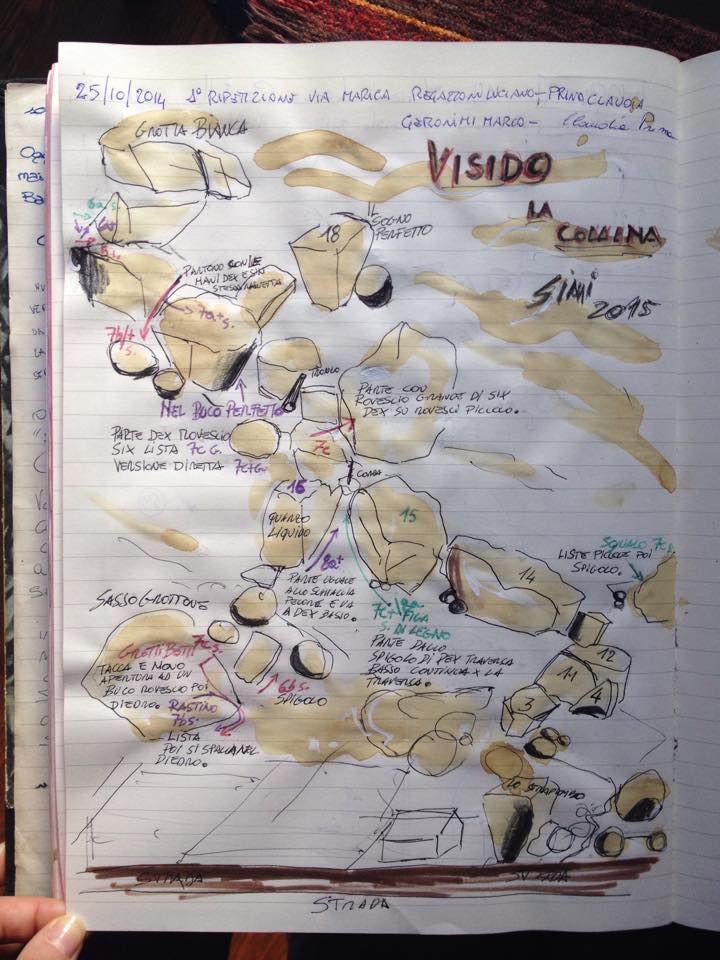 25/10/2014 1° RIPETIZIONE VIA MARICA REGAZZONI LUCIANO - PRINA CLAUDIA
GERONIMI MARCO - Claudia Prina
GROTTA BIANCA
VISIDO
LA
COLLINA
SIMI
2015
IL
SOGNO
PERFETTO
18
6a s.
PARTONO CON LE
MANI DEX E SIN
STESSA
7a+s.
7b/+
s.
TRONCO
NEL BUCO PERFETTO
PARTE DEX ROVESCIO
SIX LISTA 7c G.
VERSIONE DIRETTA 7c+G.
PARTE CON
ROVESCIO GRANDE DI SIX
DEX SU ROVESCI PICCOLO.
7c
CORDA
16
QUARZO
LIQUIDO
15
8a+
PARTE UGUALE
ALLO
E VA
A DEX BASSO.
7c+/8a
FIGA
S. DI LEGNO
PARTE DALLO
SPIGOLO DI DEX TRAVERSA
BASSO CONTINUA X LA
TRAVERSA.
14
SQUALO 7c s.
LISTE PICCOLE POI
SPIGOLO.
12
11
4
3
SASSO GROTTONE
7c s.
TACCA E MONO
APERTURA AD UN
BUCO ROVESCIO POI
DIEDRO.
RASTINO
7b s.
LISTA
POI SI SPALLA NEL
DIEDRO.
6b s.
SPIGOLO
LO STRAPIOMBO
STRADA
STRADA
STRADA